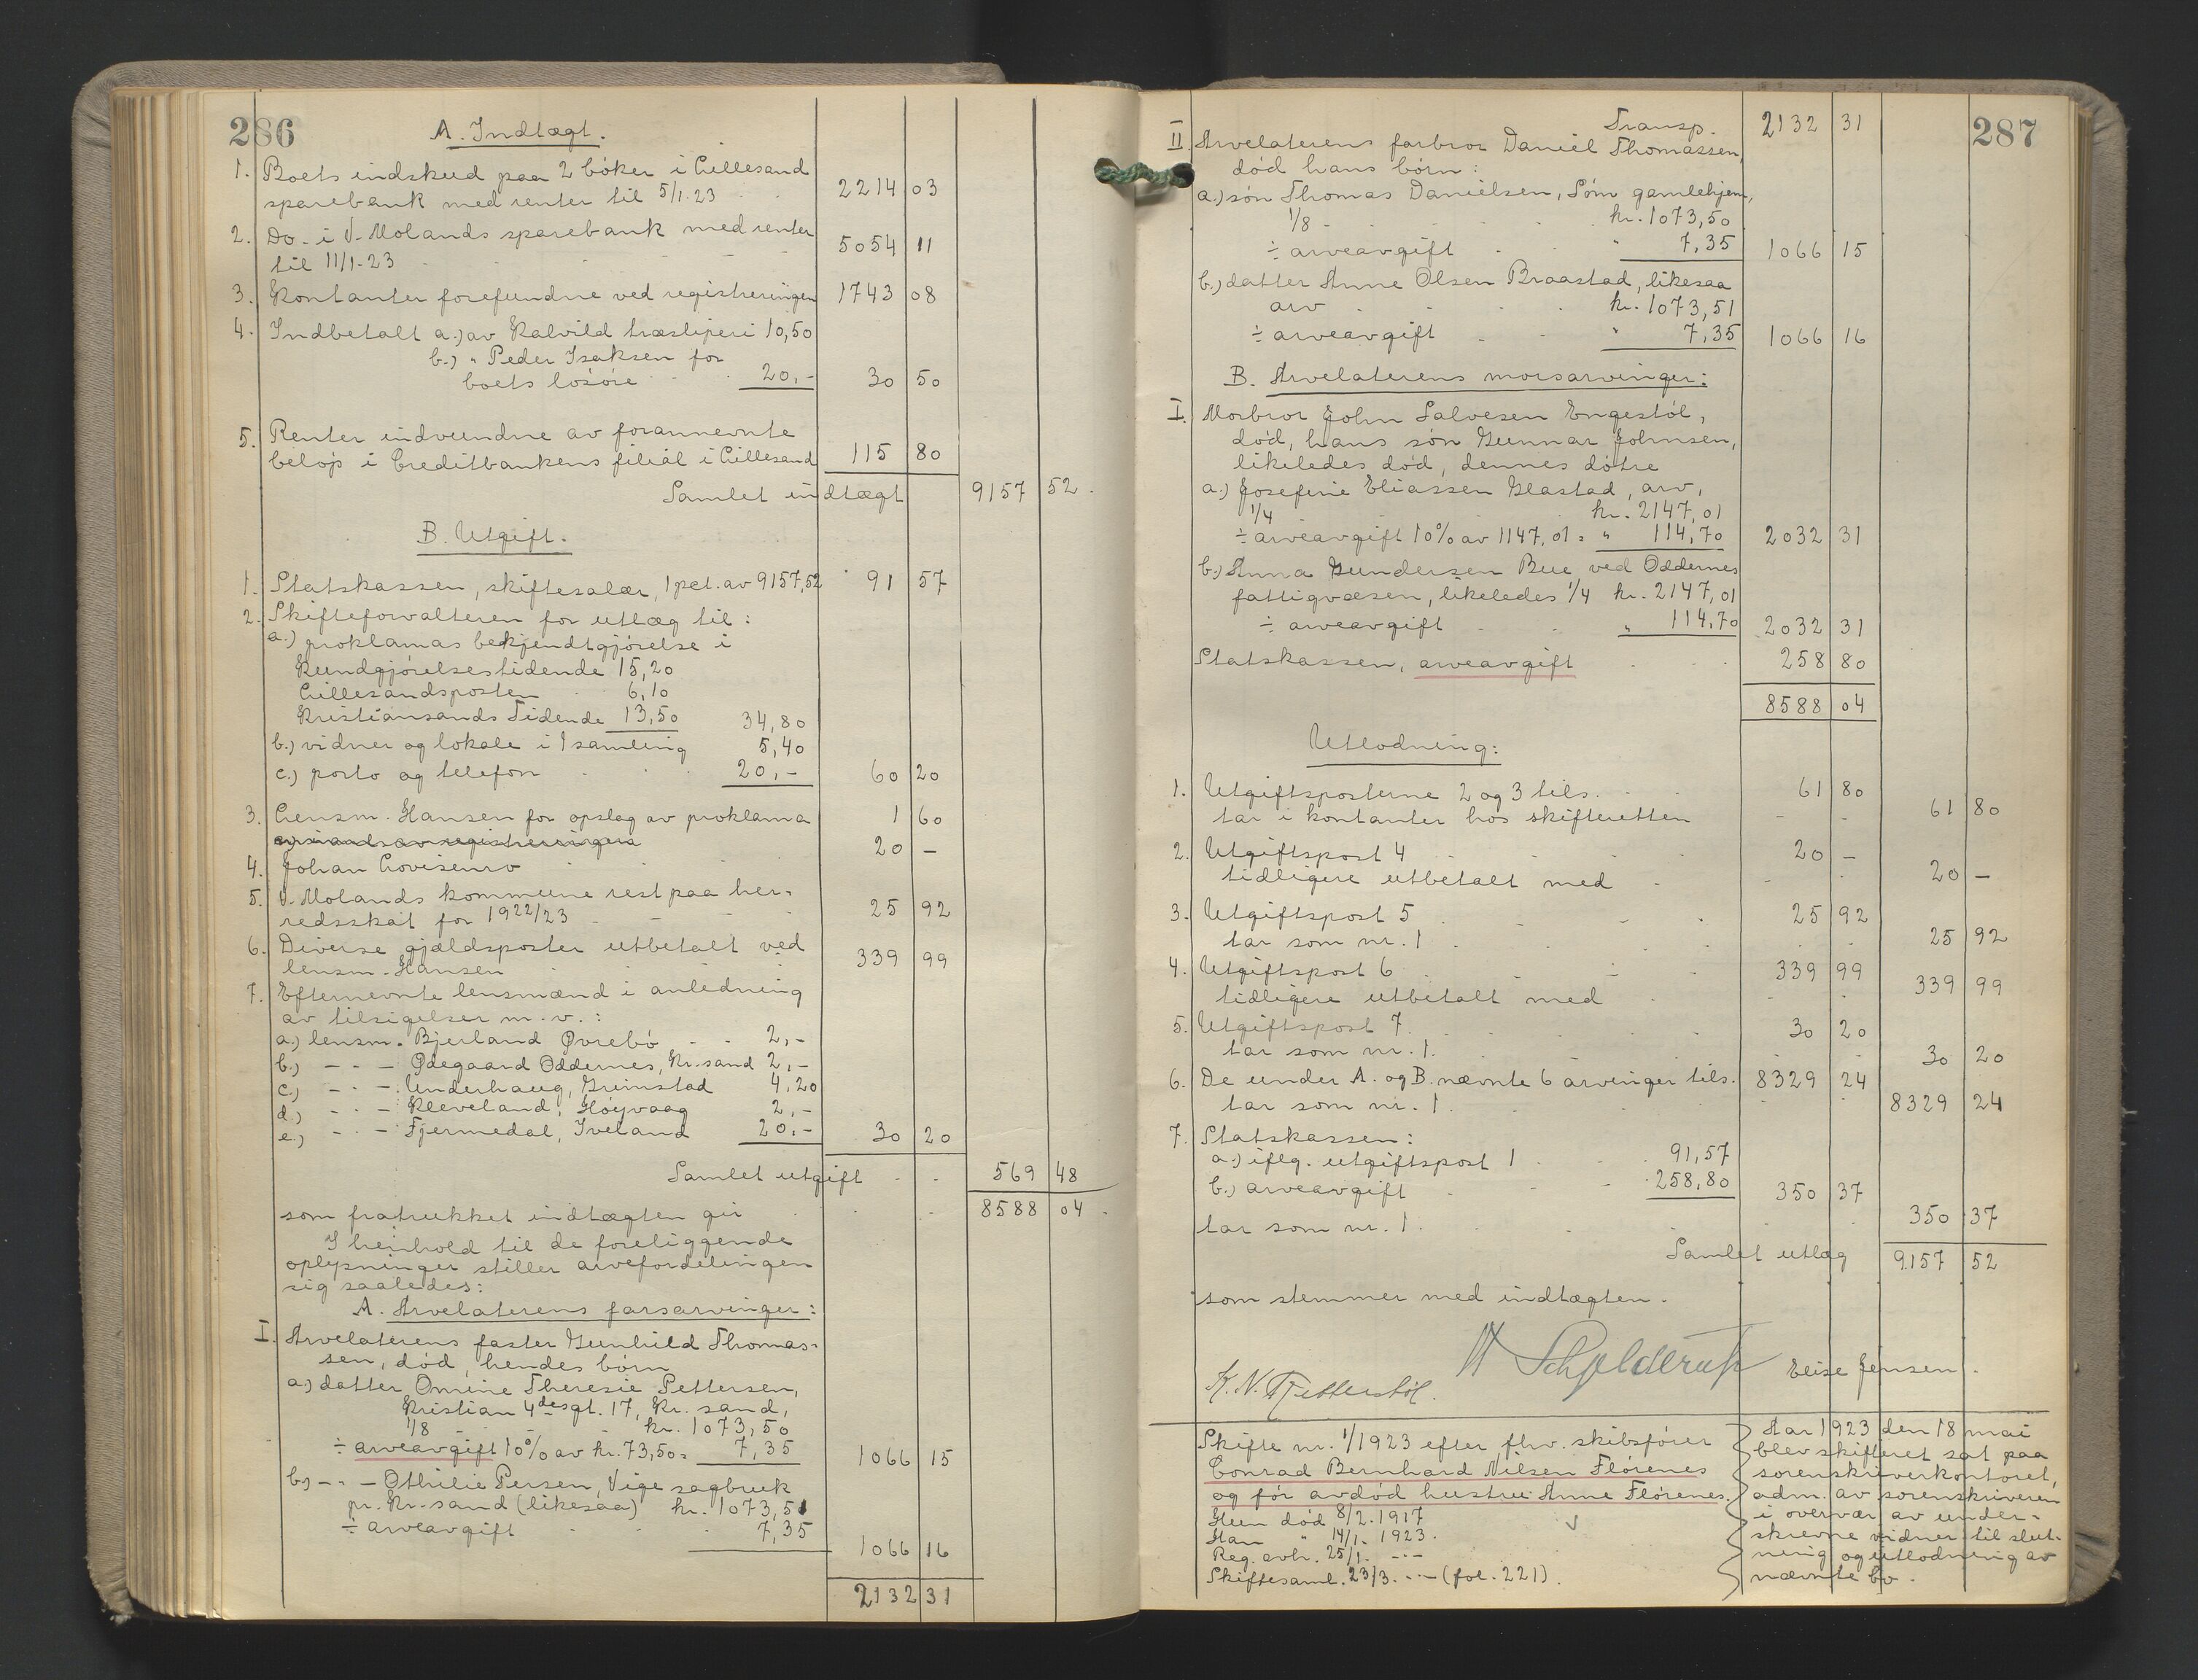 286
A. Indtægt.
1. Boets indskud paa 2 bøker i Lillesand
sparebank med renter til 5/1-23 2214 03
2. Do. i V. Molands sparebank med renter
til 11/1-23 5054 11
3. Kontanter forefundne ved registreringen 1743 08
4. Indbetalt a.) av Kalvild træsliperi 10,50
b.) " Peder Isaksen for
boets løsøre 20,- 30 50
5. Renter indvundne av forannevnte
beløp i Creditbankens filial i Lillesand 115 80
Samlet indtægt 9157 52.
B. Utgift.
1. Statskassen, skiftesalær, 1 pct. av 9157,52 91 57
2. Skifteforvalteren for utlæg til:
a.) proklamas bekjendtgjørelse i
Kundgjørelsestidende 15,20
Lillesandsposten 6,10
Kristiansands Tidende 13,50 34,80
b.) vidner og lokale i 1 samling 5,40
c.) porto og telefon 20,- 60 20
3. Lensm. Hansen for opslag av proklama 1 60
4. Johan Lovisenro 20 -
5. V. Molands kommune rest paa her-
redsskat for 1922/23 25 92
6. Diverse gjældsposter utbetalt ved
lensm. Hansen 339 99
7. Efternevnte lensmænd i anledning
av tilsigelser m.v.:
a.) lensm. Bjerland Øvrebø 2,-
b.) - - - Ødegaard Oddernes, Kr.sand 2,-
c.) - - - Underhaug, Grimstad 4,20
d.) - - - Kleveland, Høyvaag 2,-
e.) - - - Fjermedal, Iveland 20,- 30 20
Samlet utgift 569 48
som fratrukket indtægten gir 8588 04.
I henhold til de foreliggende
oplysninger stiller arvefordelingen
sig saaledes:
A. Arvelaterens farsarvinger:
I. Arvelaterens faster Gunhild Thomas-
sen, død, hendes børn
a.) datter Omine Theresie Pettersen,
Kristian 4des gt. 17, Kr. sand,
1/8 kr. 1073,50
÷ arveavgift 10% av kr. 73,50 = 7,35 1066 15
b.) - - - Othilie Persen, Vige sagbruk
pr. Kr.sand (likesaa) kr. 1073,51
÷ arveavgift 7,35 1066 16
2132 31
287
Transp. 2132 31
II Arvelaterens farbror Daniel Thomassen,
død hans børn:
a.) søn Thomas Danielsen, Søm gamlehjem,
1/8 kr. 1073,50
÷ arveavgift " 7,35 1066 15
b.) datter Anne Olsen Braastad, likesaa
arv kr. 1073,51
÷ arveavgift " 7,35 1066 16
B. Arvelaterens morsarvinger:
I. Morbror John Salvesen Engestøl,
død, hans søn Gunnar Johnsen,
likeledes død, dennes døtre
a.) Josefine Eliassen Glastad, arv,
1/4 kr. 2147,01
÷ arveavgift 10% av 1147,01 = " 114,70 2032 31
b.) Anna Gundersen Bue ved Oddernes
fattigvæsen, likeledes 1/4 kr. 2147,01
÷ arveavgift " 114,70 2032 31
Statskassen, arveavgift 258 80
8588 04
Utlodning:
1. Utgiftsposterne 2 og 3 tils. 61 80
tar i kontanter hos skifteretten 61 80
2. Utgiftspost 4 20 -
tidligere utbetalt med 20 -
3. Utgiftspost 5 25 92
tar som nr. 1 25 92
4. Utgiftspost 6 339 99
tidligere utbetalt med 339 99
5. Utgiftspost 7. 30 20
tar som nr. 1. 30 20
6. De under A. og B. nævnte 6 arvinger tils. 8329 24
tar som nr. 1. 8329 24
7. Statskassen:
a.) iflg. utgiftspost 1 91,57
b.) arveavgift 258,80 350 37
tar som nr. 1. 350 37
Samlet utlæg 9157 52
som stemmer med indtægten.
W Schjelderup Elise Jensen.
K. N. Tjetterstøl.
Skifte nr. 1/1923 efter fhv. skibsfører
Conrad Bernhard Nilsen Flørenes
og før avdød hustru Anne Flørenes.
Hun død 8/2. 1917
Han " 14/1. 1923.
Reg. avh. 25/1. - -
Skiftesaml. 23/3. - - (fol. 221).
Aar 1923 den 18 mai
blev skifteret sat paa
sorenskriverkontoret,
adm. av sorenskriveren
i overvær av under-
skrevne vidner til slut-
ning og utlodning av
nævnte bo.